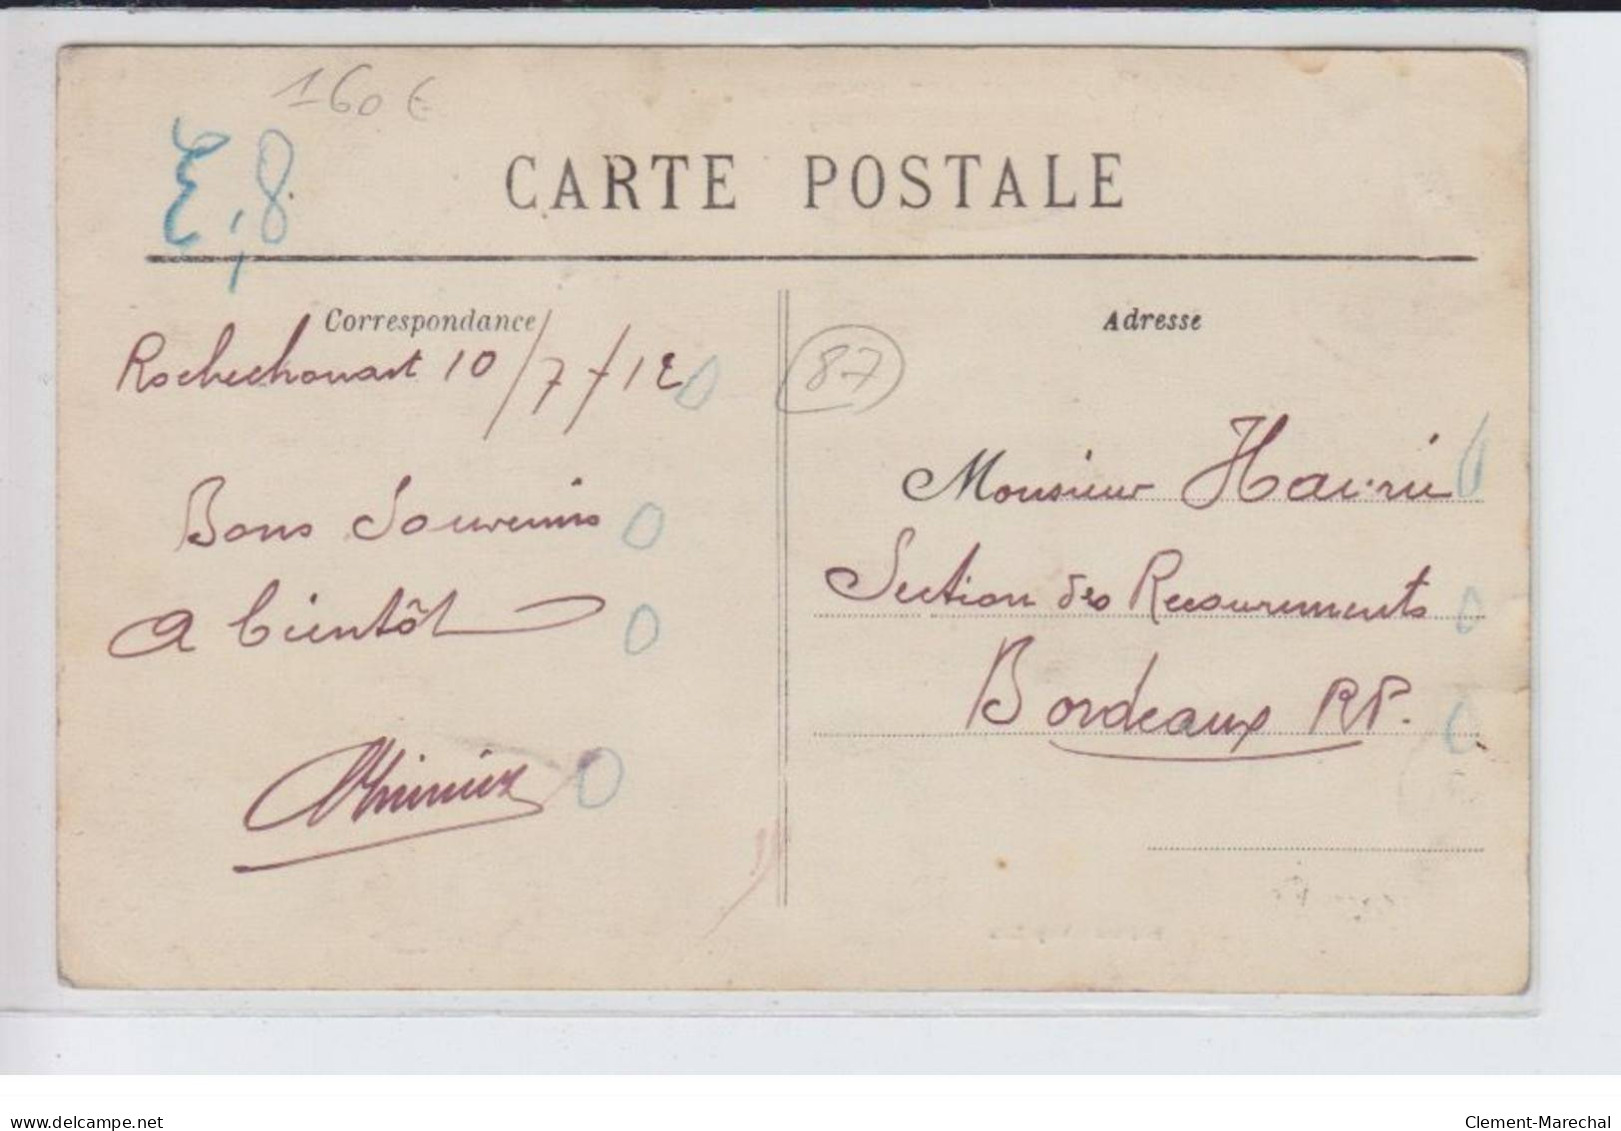 160 €
E,8
CARTE POSTALE
Correspondance
Rochechouart 10/7/12
Bons Souvenirs
A bientôt
Adresse
87
Monsieur
Section des Recouvrements
Bordeaux RP.
delcampe.net
Clement-Marechal